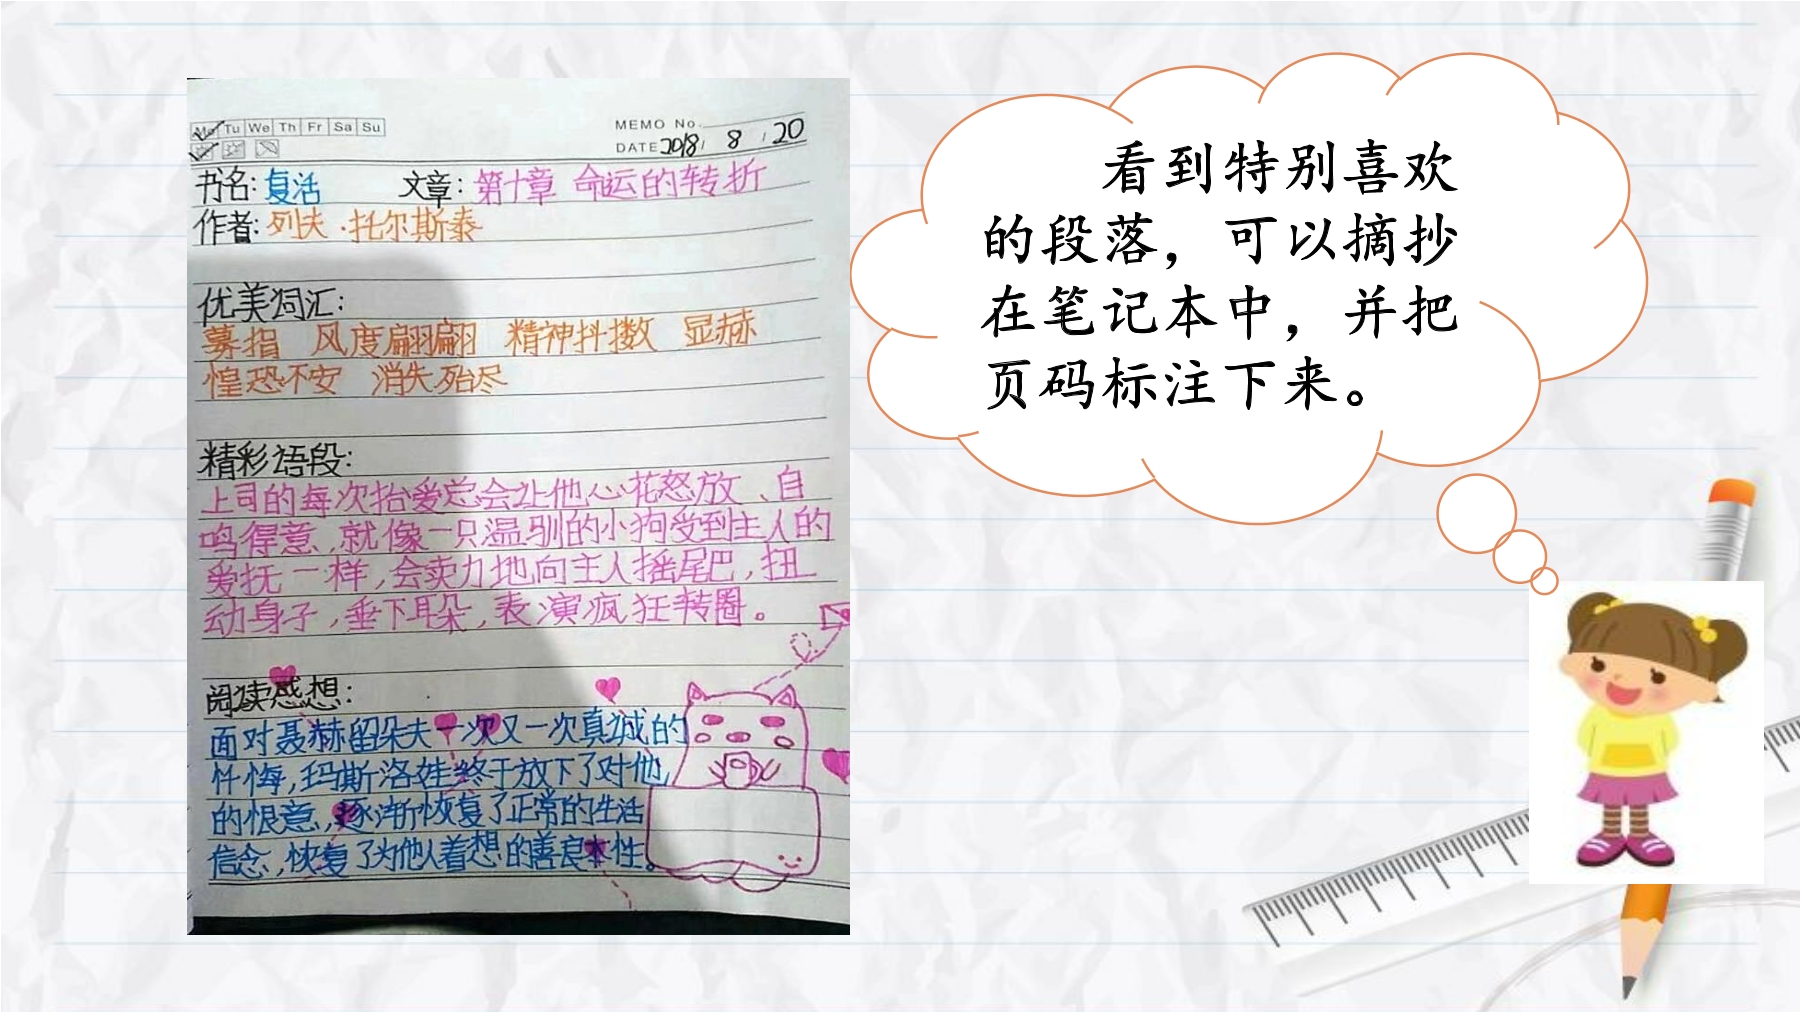 Mo Tu We Th Fr Sa Su
MEMO No.
DATE 2018 / 8 / 20
书名:复活 文章:第十章 命运的转折
作者:列夫·托尔斯泰
优美词汇:
募捐 风度翩翩 精神抖擞 显赫
惶恐不安 消失殆尽
精彩语段:
上司的每次抬爱总会让他心花怒放、自
鸣得意,就像一只温驯的小狗受到主人的
爱抚一样,会卖力地向主人摇尾巴,扭
动身子,垂下耳朵,表演疯狂转圈。
阅读感想:
面对聂赫留朵夫一次又一次真诚的
忏悔,玛斯洛娃终于放下了对他
的恨意,逐渐恢复了正常的生活
信念,恢复了为他人着想的善良本性。
看到特别喜欢
的段落，可以摘抄
在笔记本中，并把
页码标注下来。